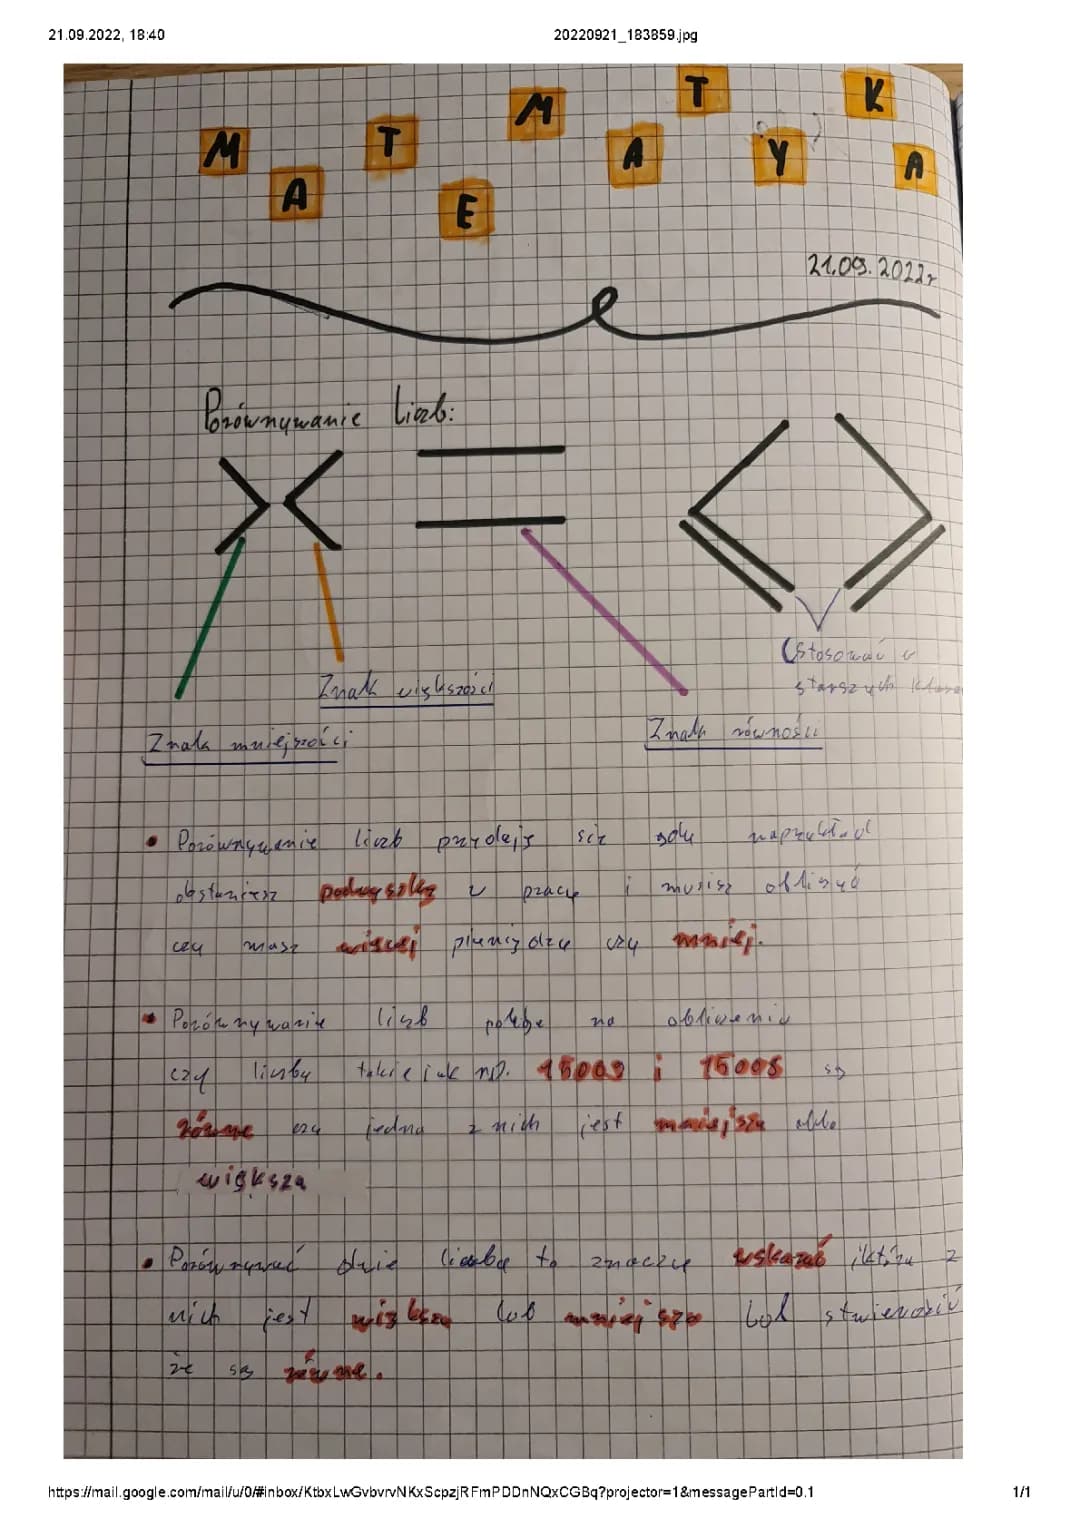 21.09.2022, 18:40 20220921_183859.jpg
MATEMATYKA
21.09.2022r
Porównywanie liczb:
> < =
(Stosować w
starszych
Znak większości
Znak mniejszości
Znak równości
• Porównywanie liczb przydaje się gdy naprzykład
dostaniesz podwyszkę w pracy i musisz obliczyć
czy masz więcej pieniędzy czy mniej.
• Porównywanie liczb polega na obliczeniu
czy liczby takie jak np. 15009 i 15008 są
równe czy jedna z nich jest mniejsza albo
większa
• Porównywać dwie liczby to znaczy wskazać, która z
nich jest większa lub mniejsza lub stwierdzić
że są równe.
https://mail.google.com/mail/u/0/#inbox/KtbxLwGvbvrvNKxScpzjRFmPDDnNQxCGBq?projector=1&messagePartId=0.1 1/1